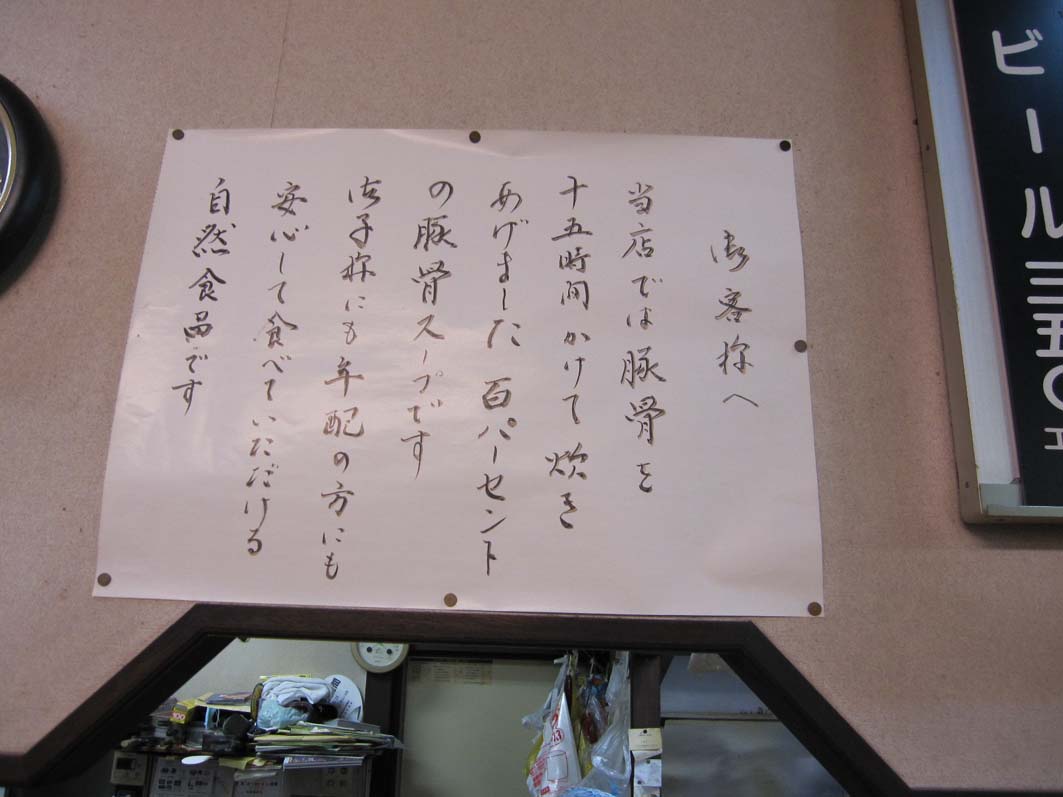 御客様へ
当店では豚骨を
十五時間かけて炊き
あげました 百パーセント
の豚骨スープです
御子様にも年配の方にも
安心して食べていただける
自然食品です
ビール三五〇